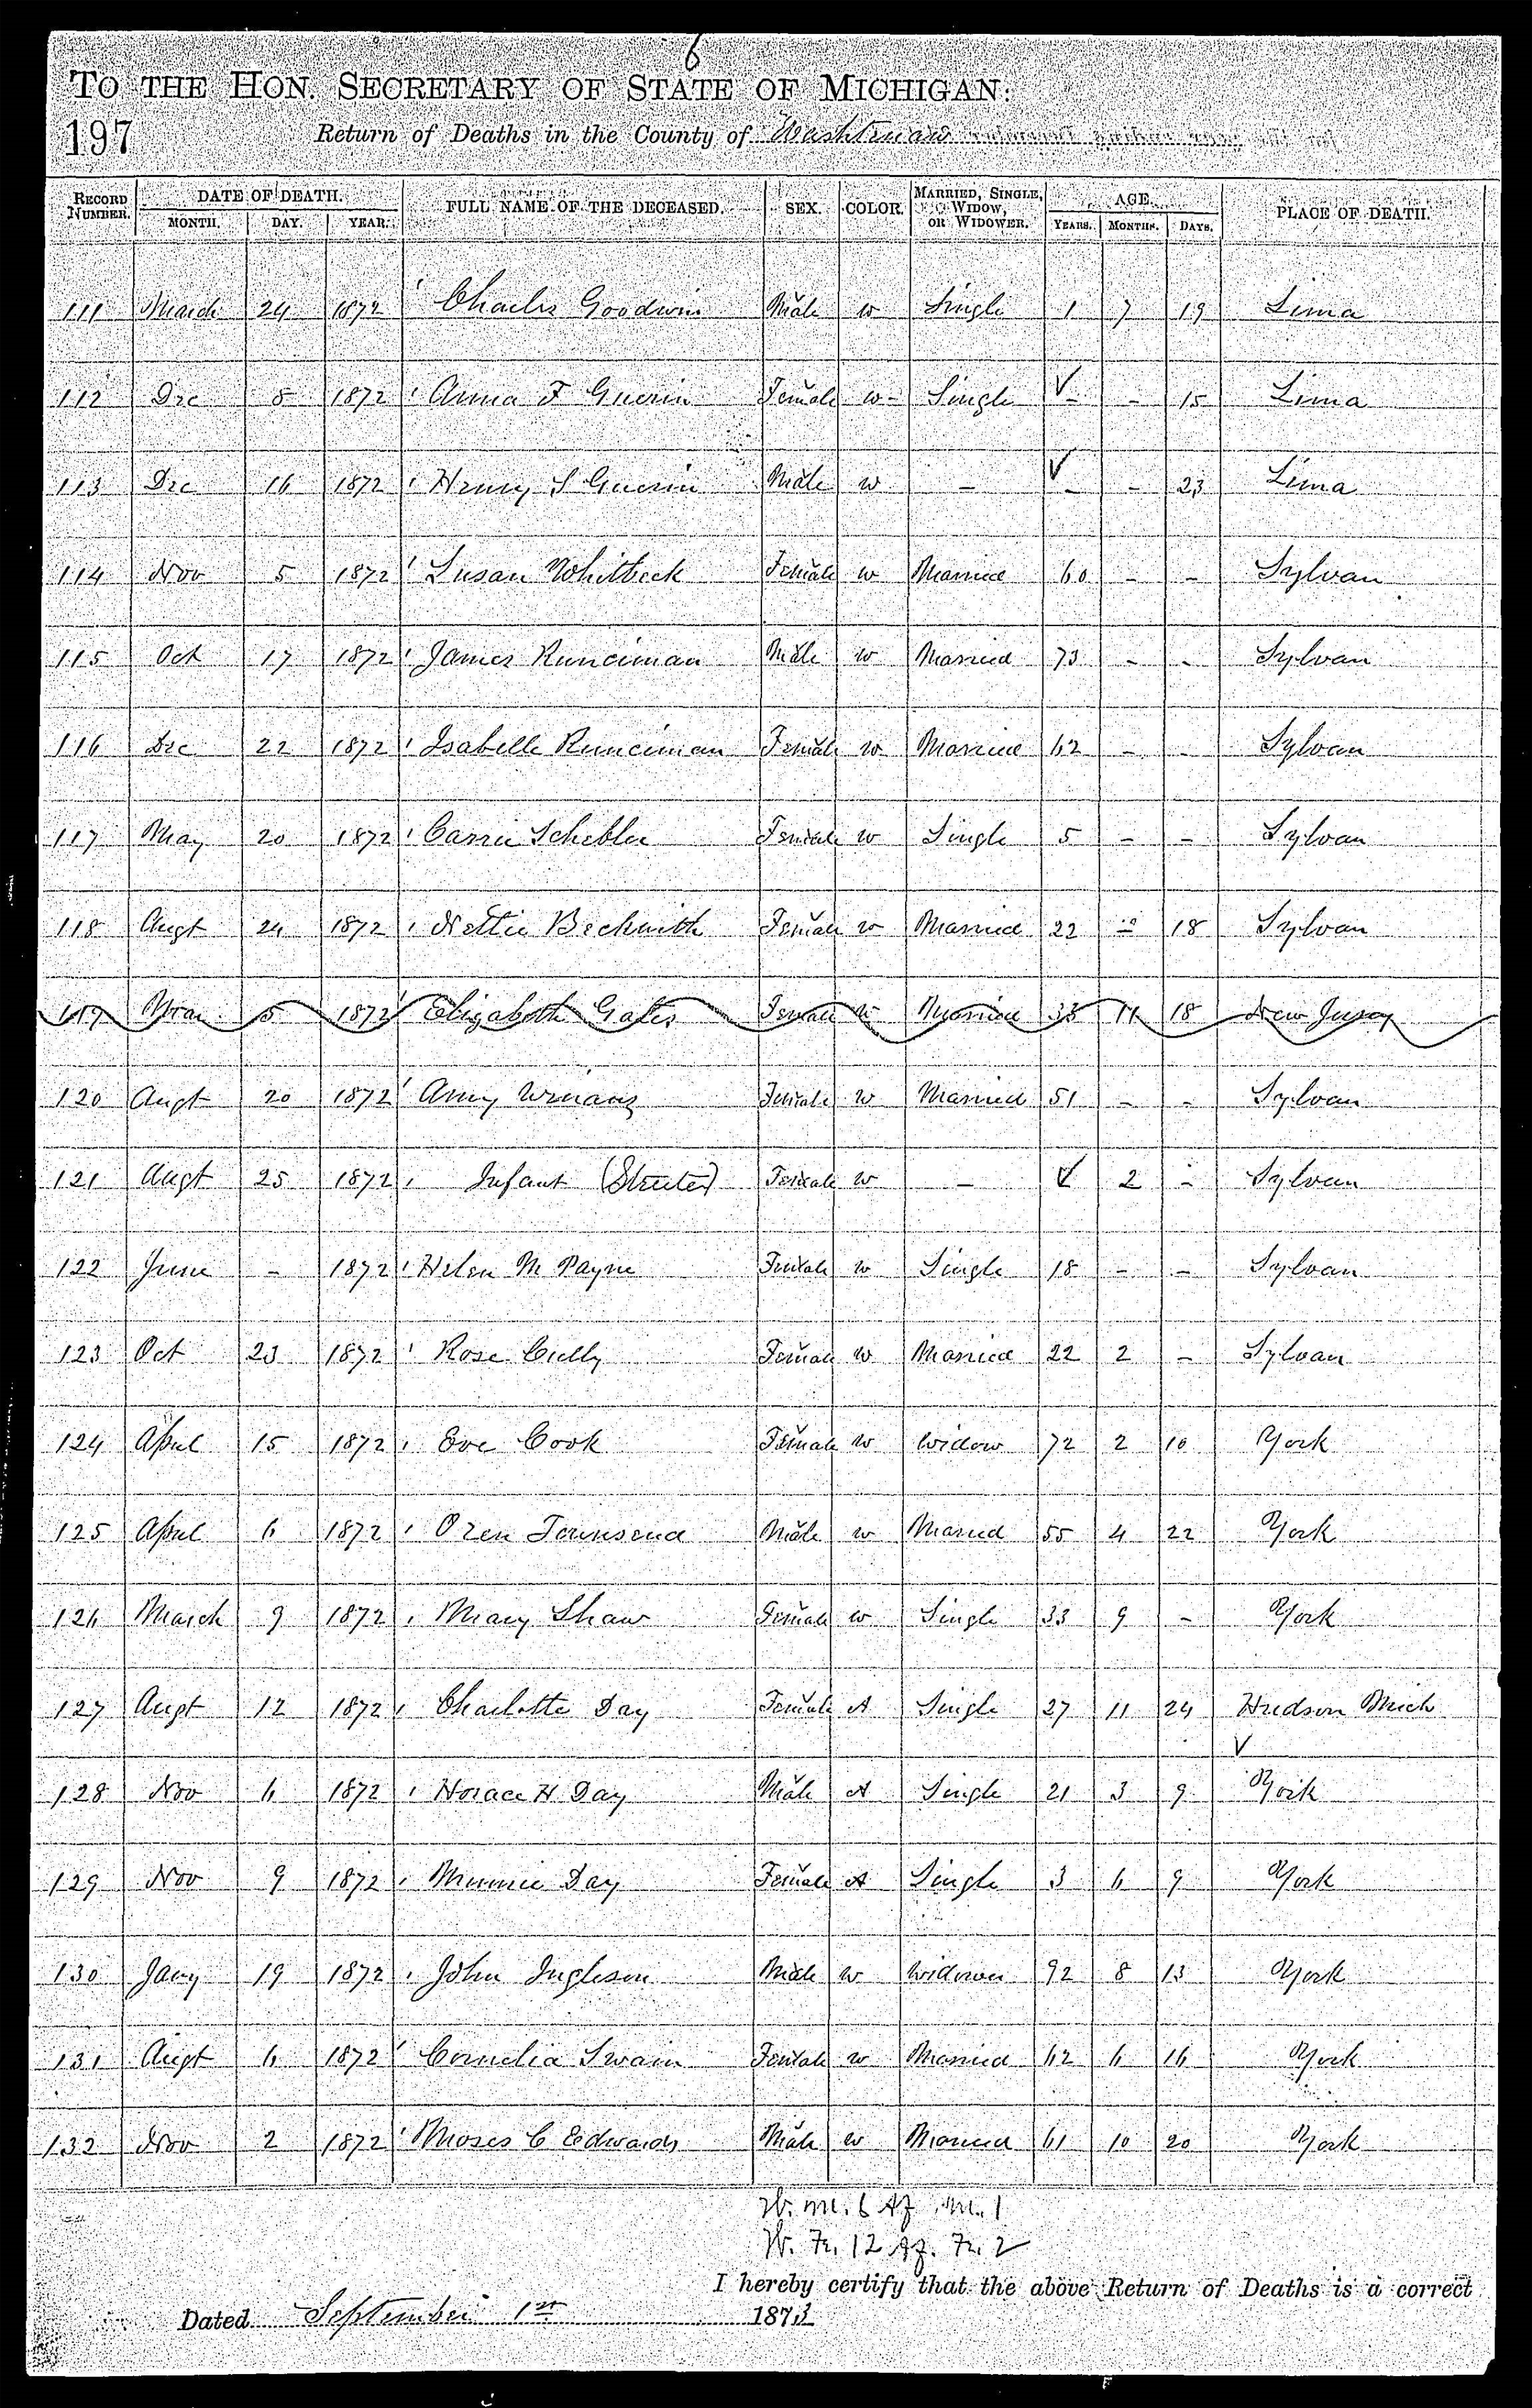 6
TO THE HON. SECRETARY OF STATE OF MICHIGAN:
197 Return of Deaths in the County of Washtenaw
RECORD NUMBER. DATE OF DEATH. MONTH. DAY. YEAR. FULL NAME OF THE DECEASED. SEX. COLOR. MARRIED, SINGLE, WIDOW, OR WIDOWER. AGE. YEARS. MONTHS. DAYS. PLACE OF DEATH.
111 March 24 1872 Charles Goodwin Male w Single 1 7 19 Lima
112 Dec 5 1872 Anna F Guerin Female w Single - - 15 Lima
113 Dec 16 1872 Henry S Guerin Male w - - - 23 Lima
114 Nov 5 1872 Susan Whitbeck Female w Married 60 - - Sylvan
115 Oct 17 1872 James Runciman Male w Married 73 - - Sylvan
116 Dec 22 1872 Isabelle Runciman Female w Married 62 - - Sylvan
117 May 20 1872 Carrie Schebler Female w Single 5 - - Sylvan
118 Augt 24 1872 Nettie Beckwith Female w Married 22 - 18 Sylvan
119 Mar 5 1872 Elizabeth Gates Female w Married 33 11 18 New Jersey
120 Augt 20 1872 Amy Winans Female w Married 51 - - Sylvan
121 Augt 25 1872 Infant (Streeter) Female w - 2 - Sylvan
122 June - 1872 Helen M Payne Female w Single 18 - - Sylvan
123 Oct 23 1872 Rose Cully Female w Married 22 2 - Sylvan
124 April 15 1872 Eve Cook Female w Widow 72 2 10 York
125 April 6 1872 Oren Townsend Male w Married 55 4 22 York
126 March 9 1872 Mary Shaw Female w Single 33 9 - York
127 Augt 12 1872 Charlotte Day Female A Single 27 11 24 Hudson Mich
128 Nov 6 1872 Horace H Day Male A Single 21 3 9 York
129 Nov 9 1872 Minnie Day Female A Single 3 6 9 York
130 Jany 19 1872 John Ingleson Male w Widower 92 8 13 York
131 Augt 6 1872 Cornelia Swain Female w Married 62 6 16 York
132 Nov 2 1872 Moses C Edwards Male w Married 61 10 20 York
W. m. 6 Af. m. 1
W. Fe. 12 Af. Fe. 2
I hereby certify that the above Return of Deaths is a correct
Dated September 1st 1873